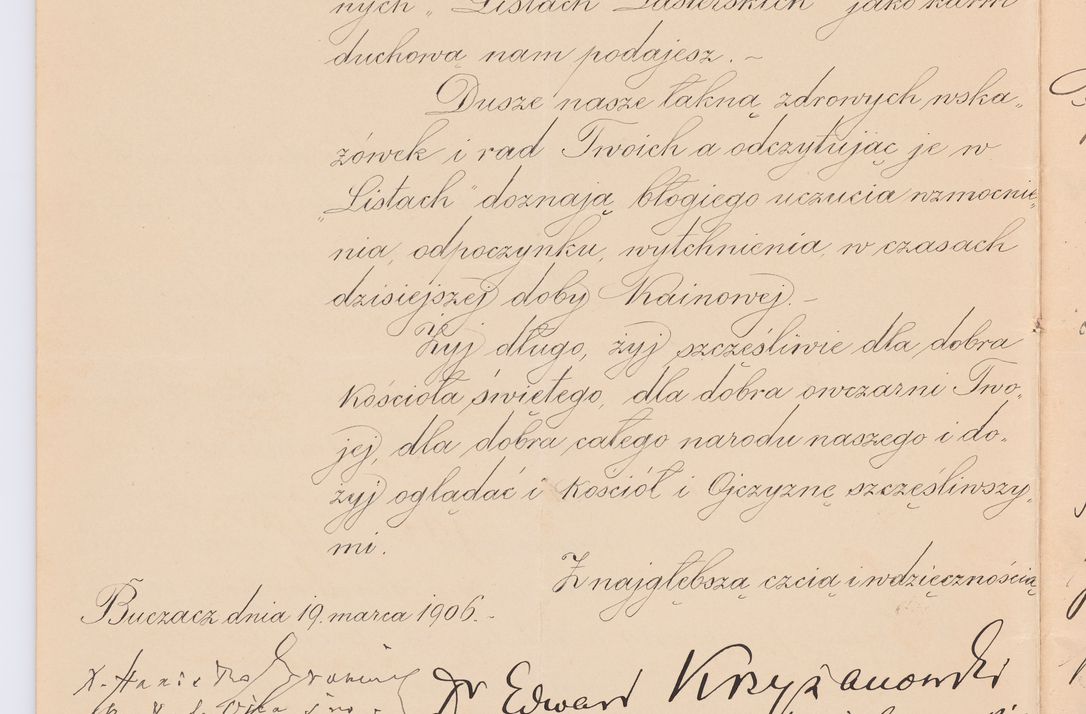 nych „Listach Pasterskich" jako karm
duchową nam podajesz. –
Dusze nasze łakną zdrowych wska„
zówek i rad Twoich a odczytując je w
„Listach" doznają błogiego uczucia wzmocnie„
nia, odpoczynku, wytchnienia, w czasach
dzisiejszej doby Kainowej. –
Żyj długo, żyj szczęśliwie dla dobra
Kościoła świętego, dla dobra owczarni Two„
jej, dla dobra całego narodu naszego i do„
żyj oglądać i Kościół i Ojczyznę szczęśliwszy„
mi.
Z najgłębszą czcią i wdzięcznością
Buczacz dnia 19. marca 1906. –
X. Stanisław
Dr Edward Krzyżanowski